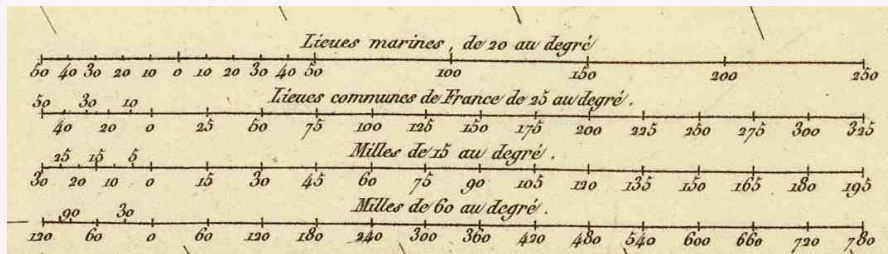 Lieues marines, de 20 au degré
50 40 30 20 10 0 10 20 30 40 50 100 150 200 250
50 30 10 Lieues communes de France de 25 au degré.
40 20 0 25 50 75 100 125 150 175 200 225 250 275 300 325
25 15 5 Milles de 15 au degré.
30 20 10 0 15 30 45 60 75 90 105 120 135 150 165 180 195
90 30 Milles de 60 au degré.
120 60 0 60 120 180 240 300 360 420 480 540 600 660 720 780